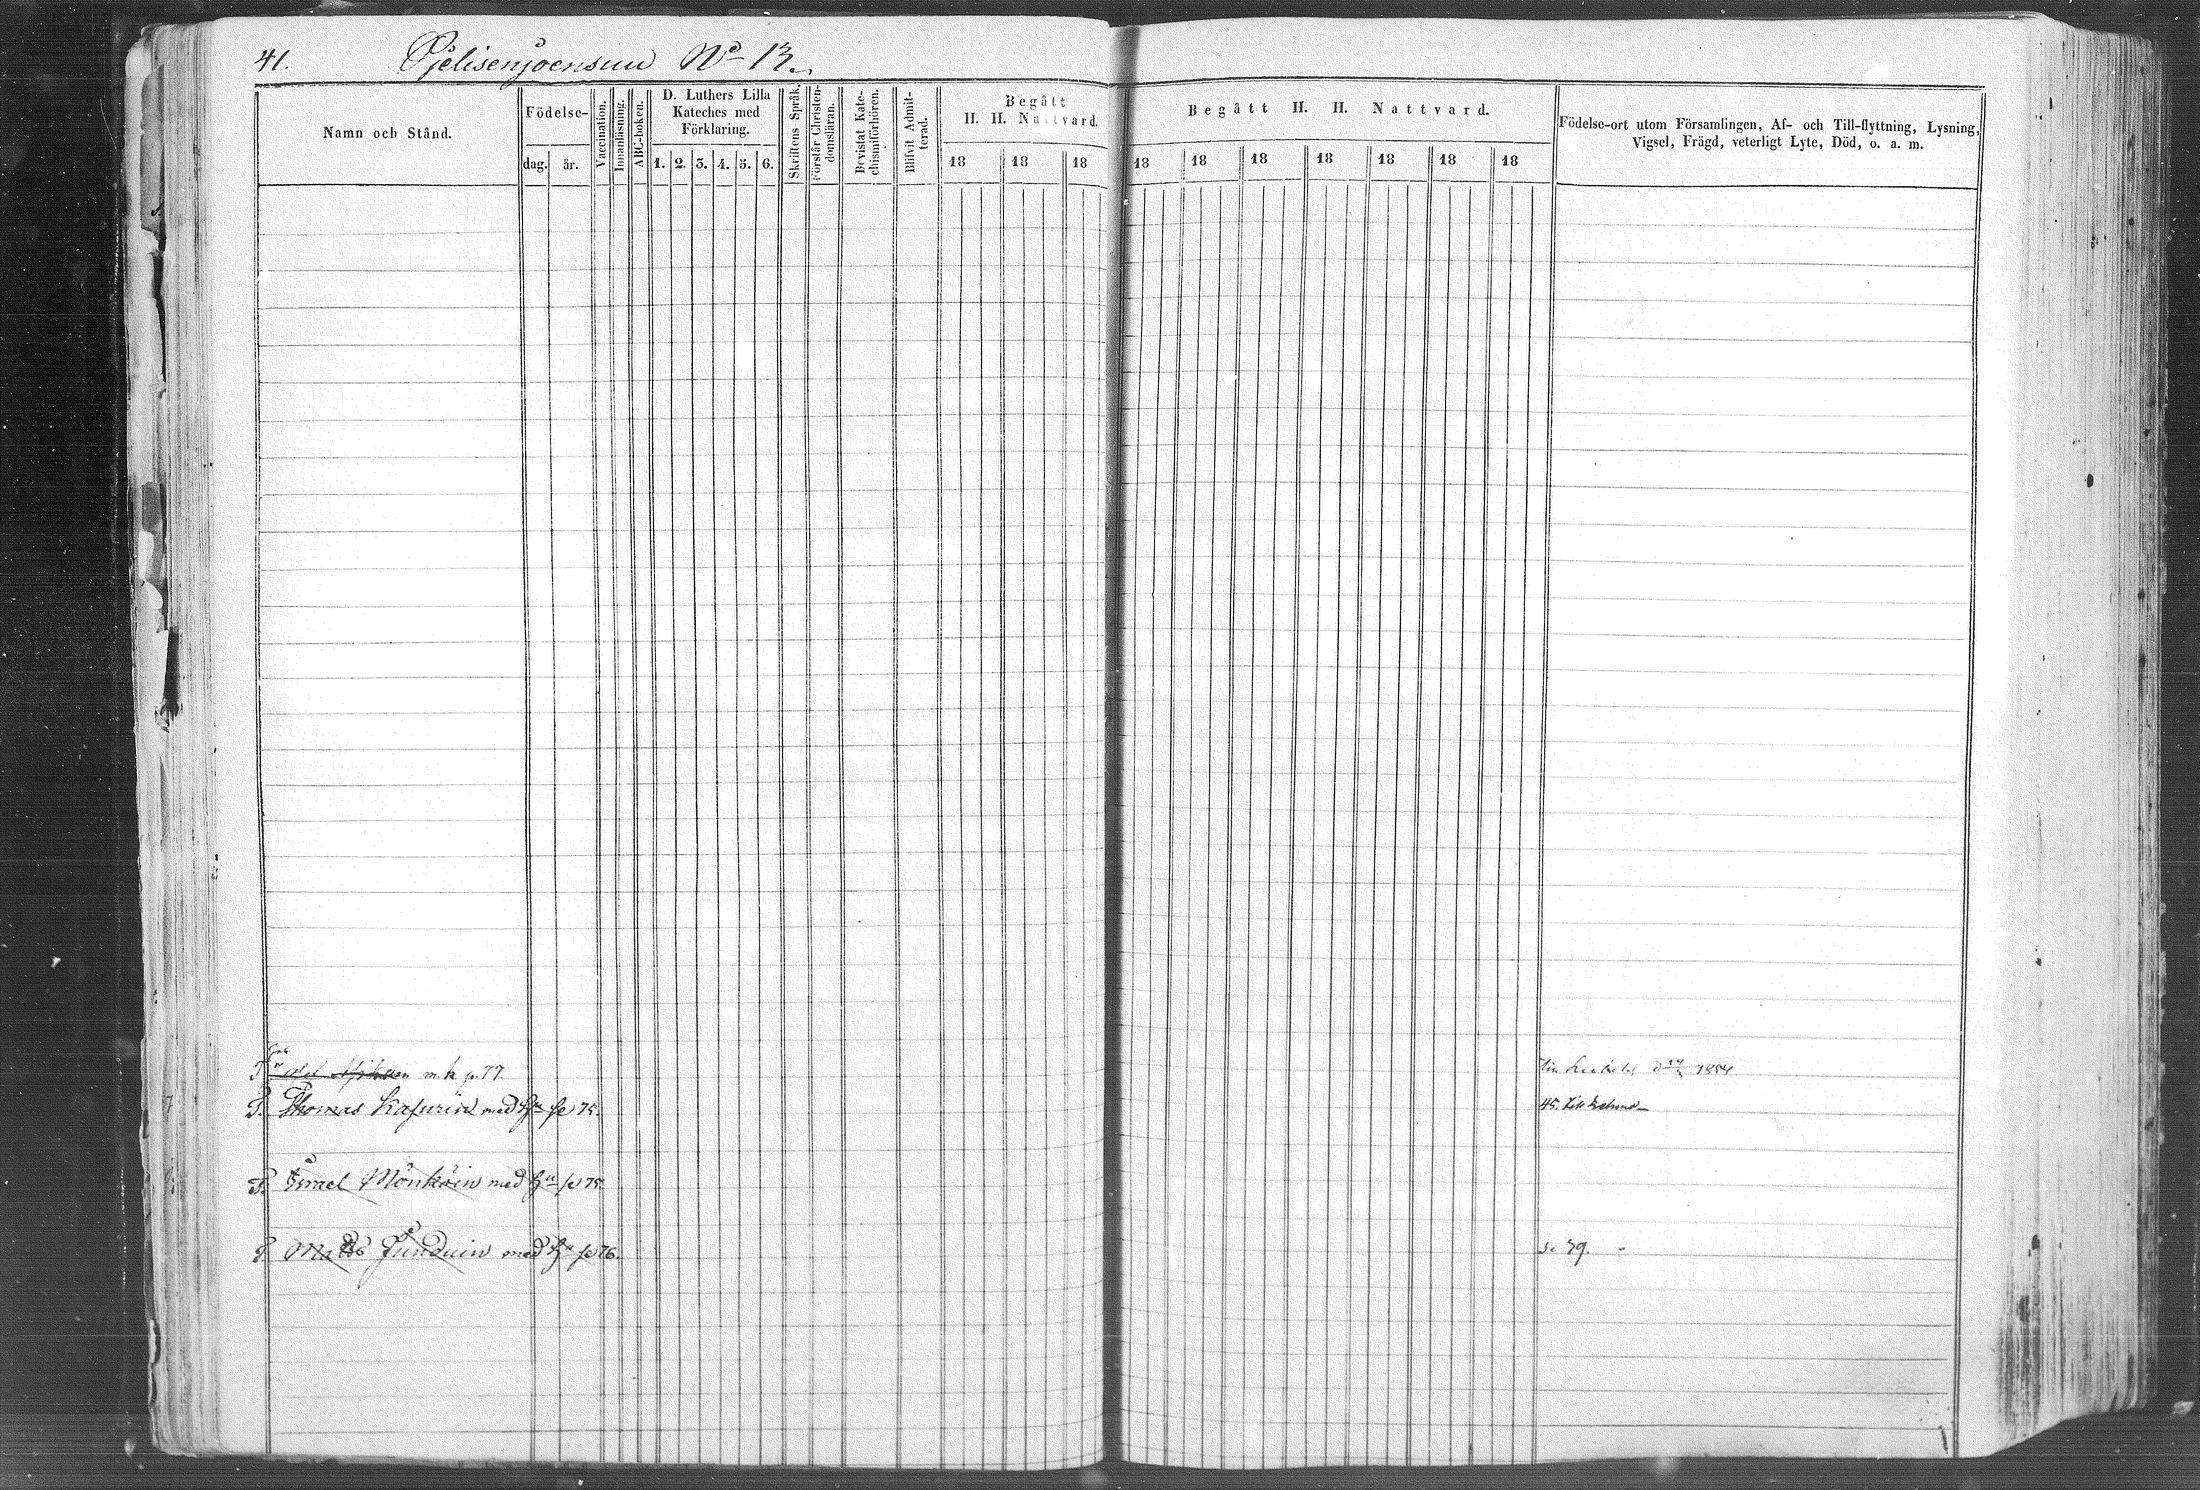 41. Pjelisenjoensuu No 13.
Namn och Stånd.
Födelse-
dag. år.
Vaccination.
Innanläsning.
ABC-boken.
D. Luthers Lilla
Kateches med
Förklaring.
1. 2. 3. 4. 5. 6.
Skriftens Språk.
Förstår Christen-
domsläran.
Bevistat Kate-
chismiförhören.
Blifvit Admit-
terad.
Begått
H. H. Nattvard.
18 18 18
Begått H. H. Nattvard.
18 18 18 18 18 18 18
Födelse-ort utom Församlingen, Af- och Till-flyttning, Lysning,
Vigsel, Frägd, veterligt Lyte, Död, o. a. m.
m. h p. 77. 1854
T. Thomas Kasurin med Hu se 75. 45. till
T. Israel Mönköin med Hu se 75
T. Matts Junduin med Hu se 76. se 79.